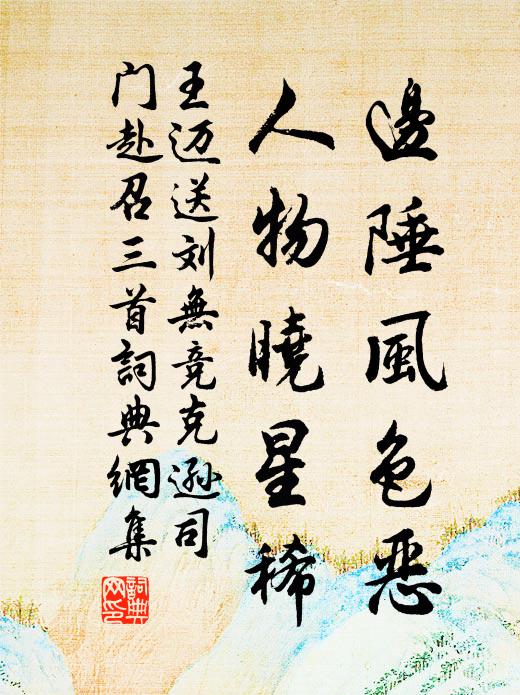 邊陲風色惡
人物曉星稀
王迈送刘無競克遜司
门赴召三首詞典網集
詞典
网印